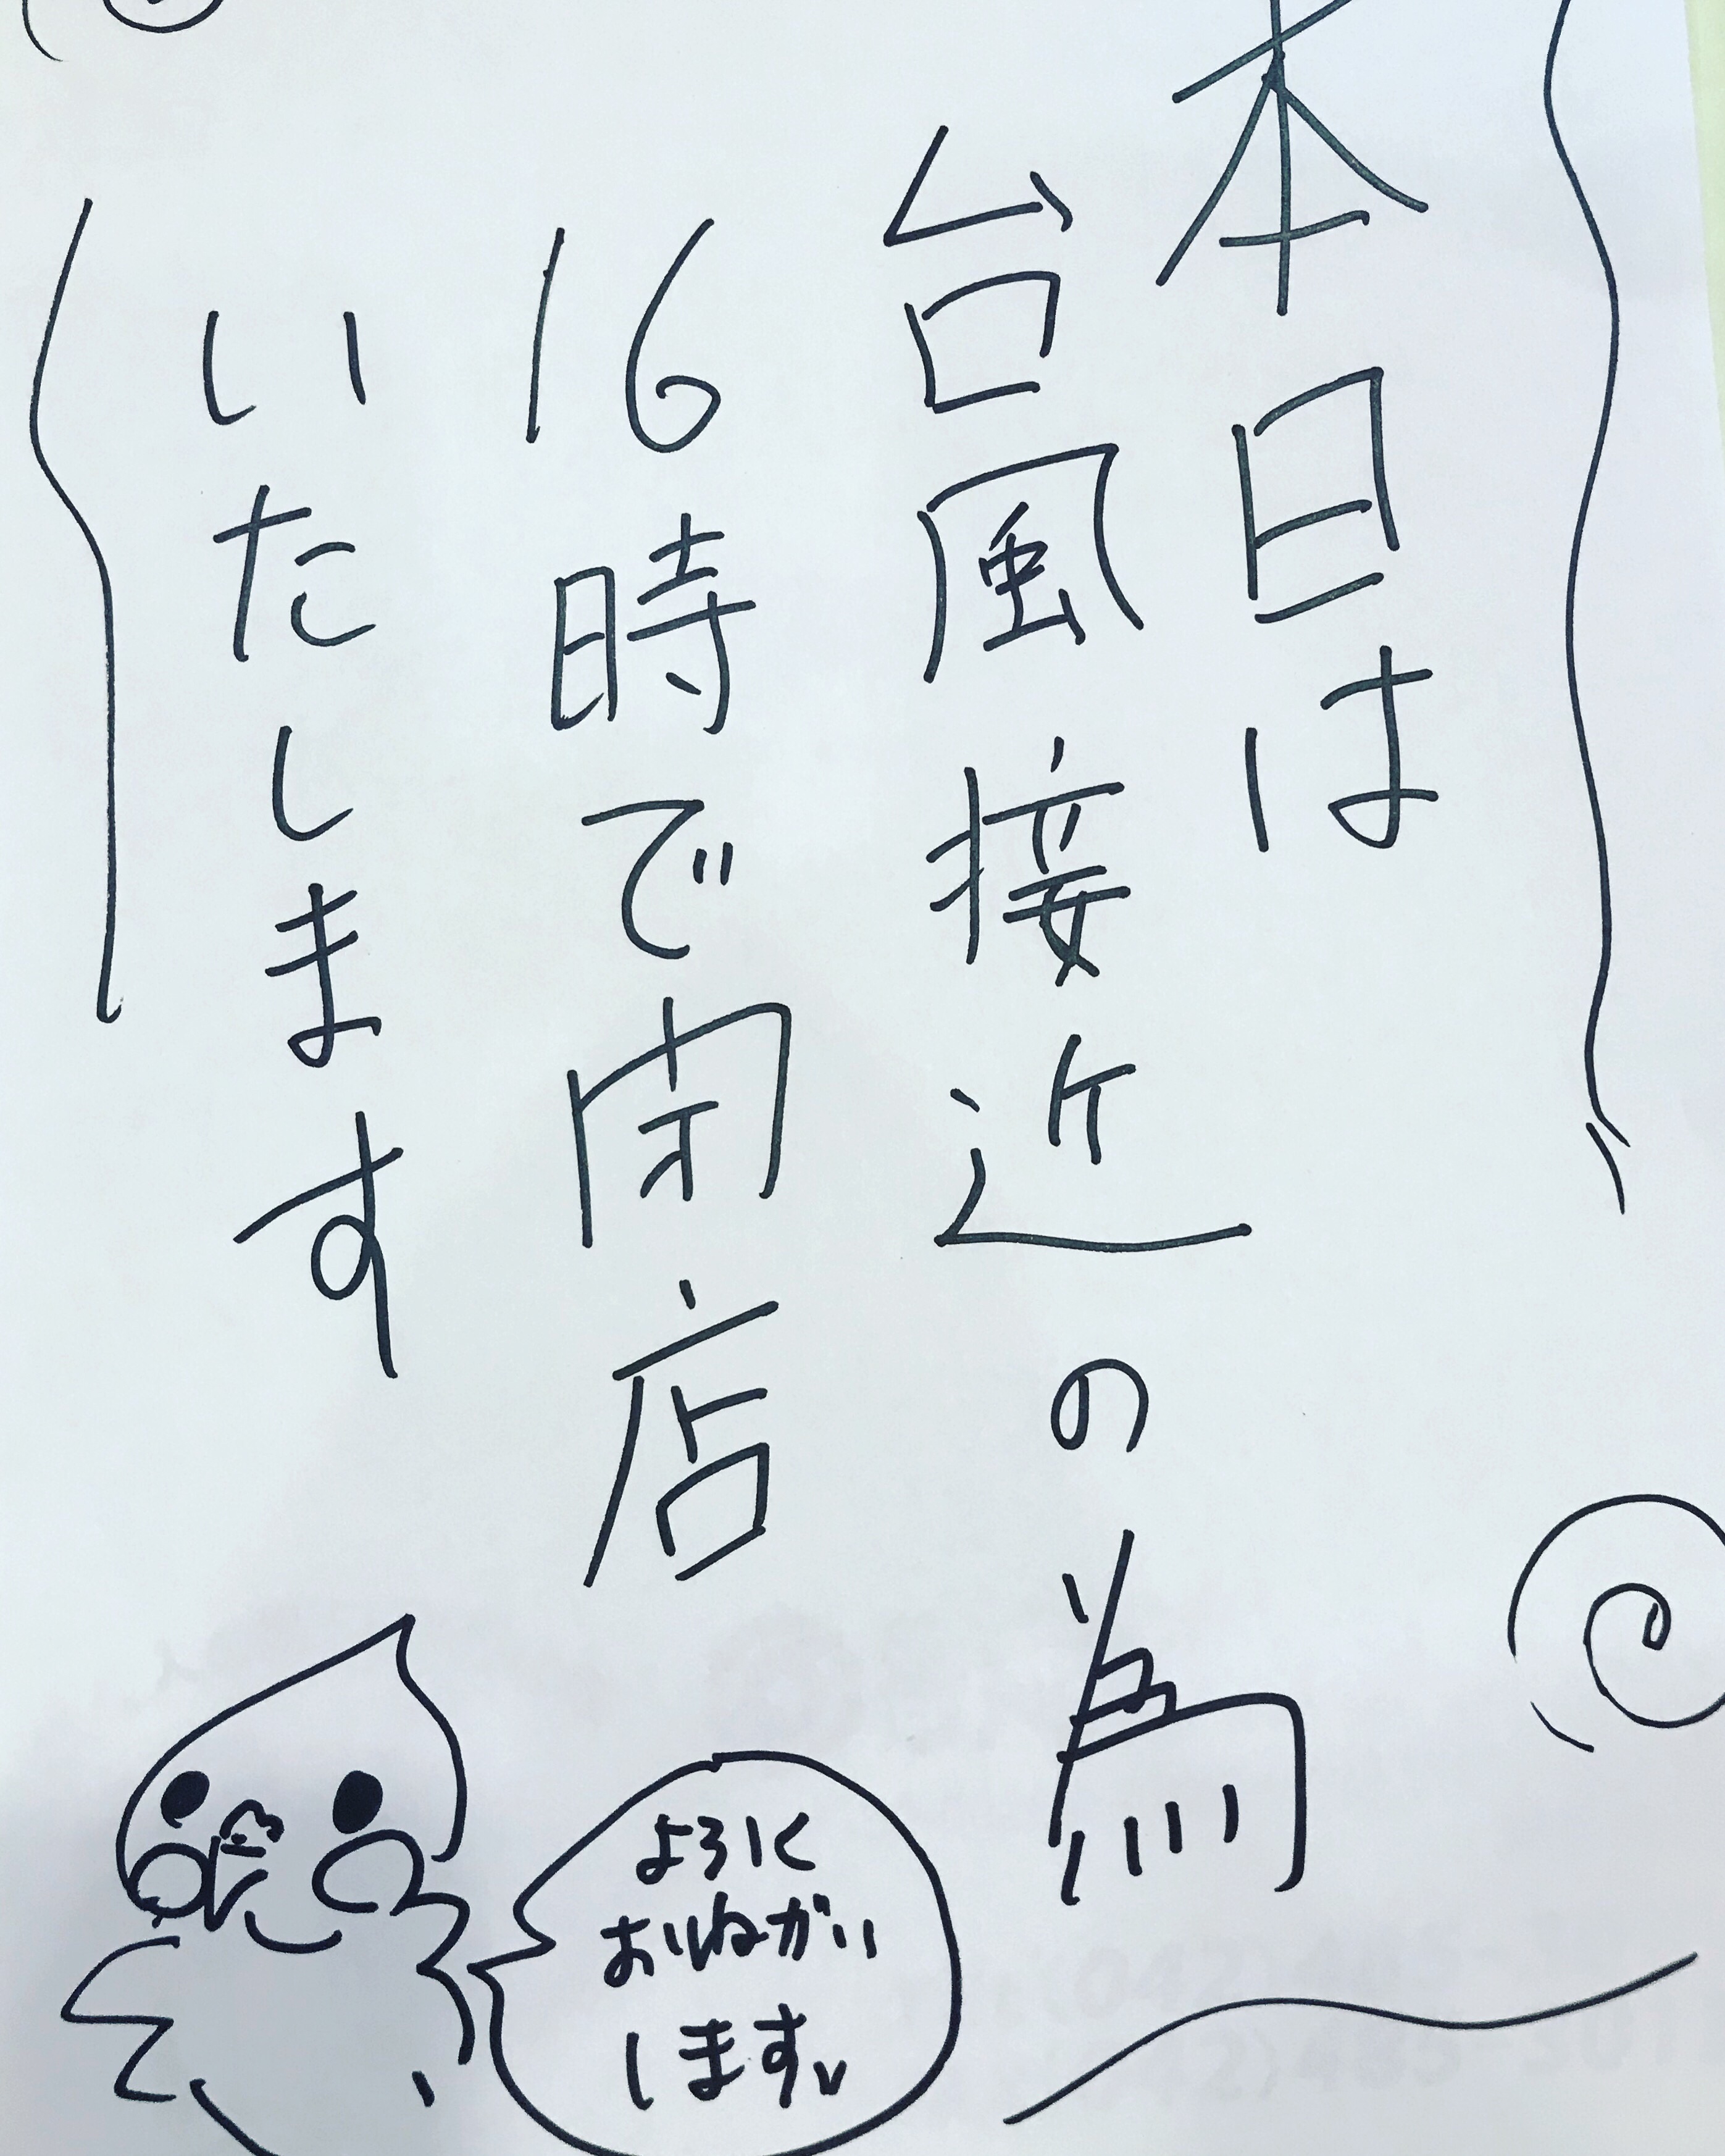 本日は
台風接近の為
16時で閉店
いたします
よろしく
おねがい
します